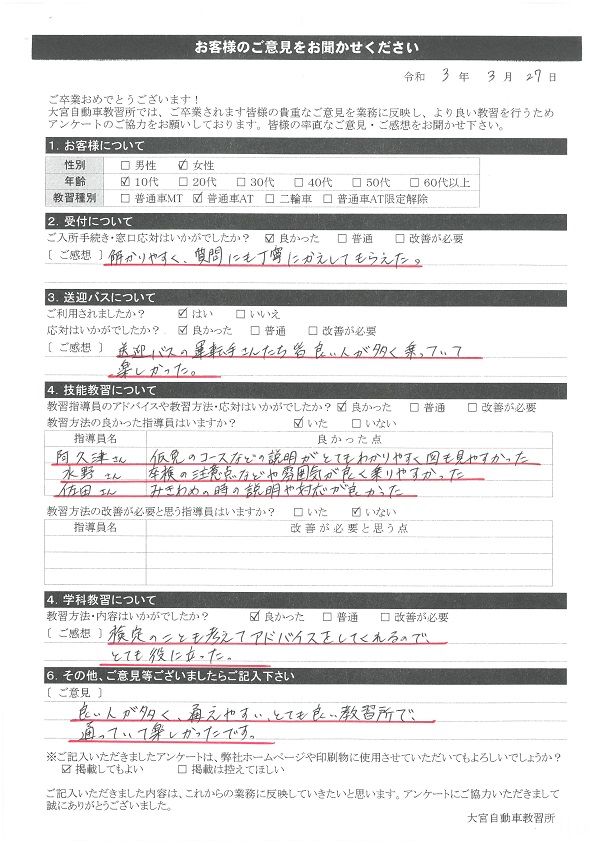 お客様のご意見をお聞かせください
令和 3 年 3 月 27 日
ご卒業おめでとうございます！
大宮自動車教習所では、ご卒業されます皆様の貴重なご意見を業務に反映し、より良い教習を行うため
アンケートのご協力をお願いしております。皆様の率直なご意見・ご感想をお聞かせ下さい。
1. お客様について
性別 □ 男性 ☑ 女性
年齢 ☑ 10代 □ 20代 □ 30代 □ 40代 □ 50代 □ 60代以上
教習種別 □ 普通車MT ☑ 普通車AT □ 二輪車 □ 普通車AT限定解除
2. 受付について
ご入所手続き・窓口応対はいかがでしたか？ ☑ 良かった □ 普通 □ 改善が必要
［ ご感想 ］ 解かりやすく、質問にも丁寧にかえしてもらえた。
3. 送迎バスについて
ご利用されましたか？ ☑ はい □ いいえ
応対はいかがでしたか？ ☑ 良かった □ 普通 □ 改善が必要
［ ご感想 ］ 送迎バスの運転手さんたち皆良い人が多く乗っていて
楽しかった。
4. 技能教習について
教習指導員のアドバイスや教習方法・応対はいかがでしたか？ ☑ 良かった □ 普通 □ 改善が必要
教習方法の良かった指導員はいますか？ ☑ いた □ いない
指導員名 良かった点
阿久津さん 仮免のコースなどの説明がとてもわかりやすく図も見やすかった
水野さん 卒検の注意点などや雰囲気が良く乗りやすかった
佐田さん みきわめの時の説明や対応が良かった
教習方法の改善が必要と思う指導員はいますか？ □ いた ☑ いない
指導員名 改善が必要と思う点
4. 学科教習について
教習方法・内容はいかがでしたか？ ☑ 良かった □ 普通 □ 改善が必要
［ ご感想 ］ 検定のことも考えてアドバイスをしてくれるので、
とても役に立った。
6. その他、ご意見等ございましたらご記入下さい
［ ご意見 ］
良い人が多く、通えやすい、とても良い教習所で、
通っていて楽しかったです。
※ご記入いただきましたアンケートは、弊社ホームページや印刷物に使用させていただいてもよろしいでしょうか？
☑ 掲載してもよい □ 掲載は控えてほしい
ご記入いただきました内容は、これからの業務に反映していきたいと思います。アンケートにご協力いただきまして
誠にありがとうございました。
大宮自動車教習所